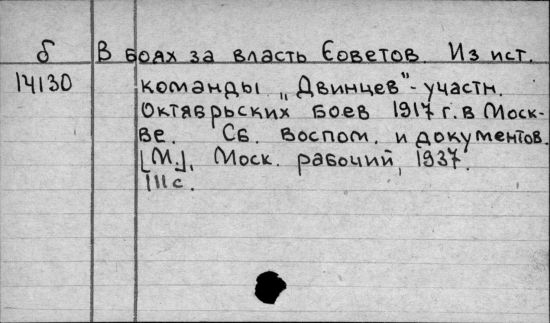 б В боях за власть Советов. Из ист.
14130 команды „Двинцев"-участн.
Октябрьских боев 1917 г. в Моск-
ве. Сб. воспом. и документов.
[М.], Моск. рабочий, 1937.
111 с.